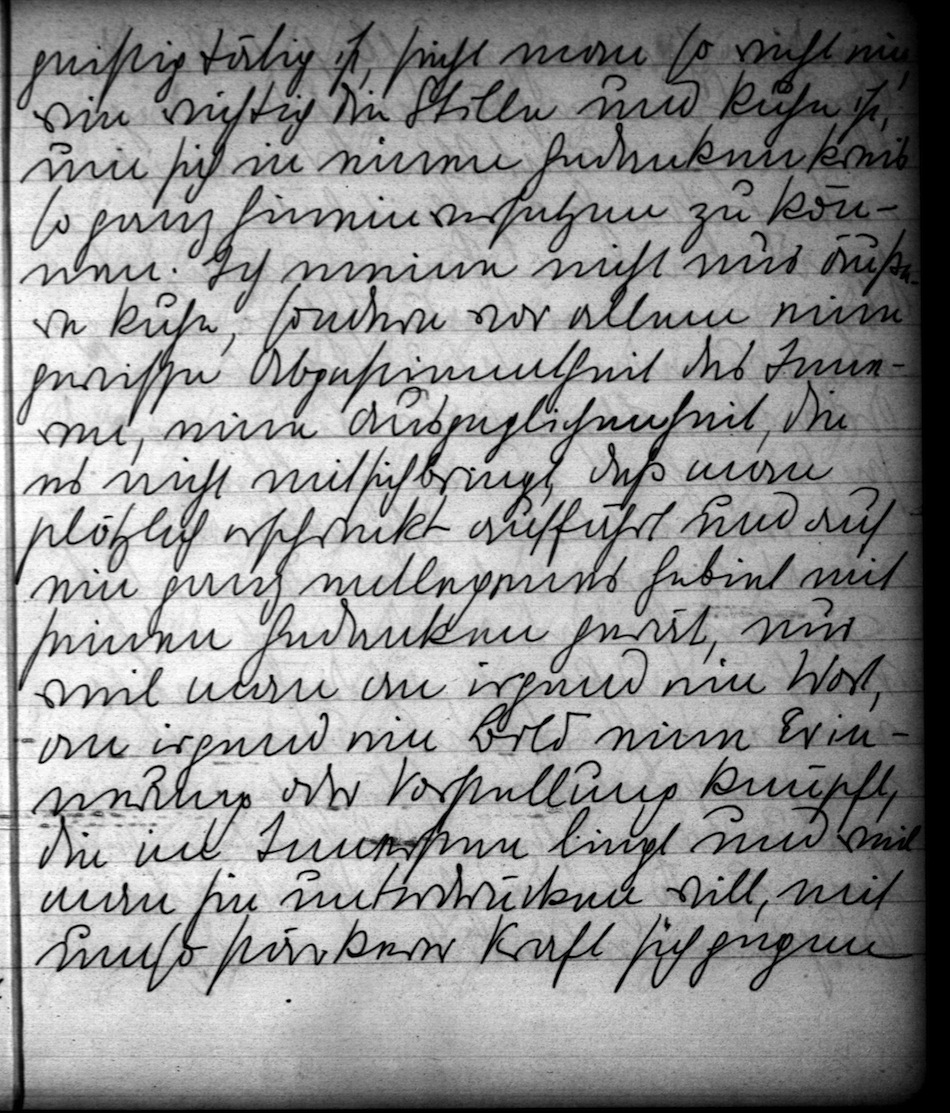 geistig tätig ist, sieht man so recht ein,
wie wichtig die Stille und Ruhe ist,
um sich in einen Gedankenkreis
so ganz hineinversetzen zu kön-
nen. Ich meine nicht nur äuße-
re Ruhe, sondern vor allem eine
gewisse Abgestimmtheit des Inne-
ren, eine Ausgeglichenheit, die
es nicht mitsichbringt, daß man
plötzlich erschrickt auffährt und auf
ein ganz entlegenes Gebiet mit
seinen Gedanken gerät, nur
weil man an irgend ein Wort,
an irgend ein Bild eine Erin-
nerung oder Vorstellung knüpft,
die im Innersten liegt und weil
man sie unterdrücken will, mit
umso stärkerer Kraft sich gegen